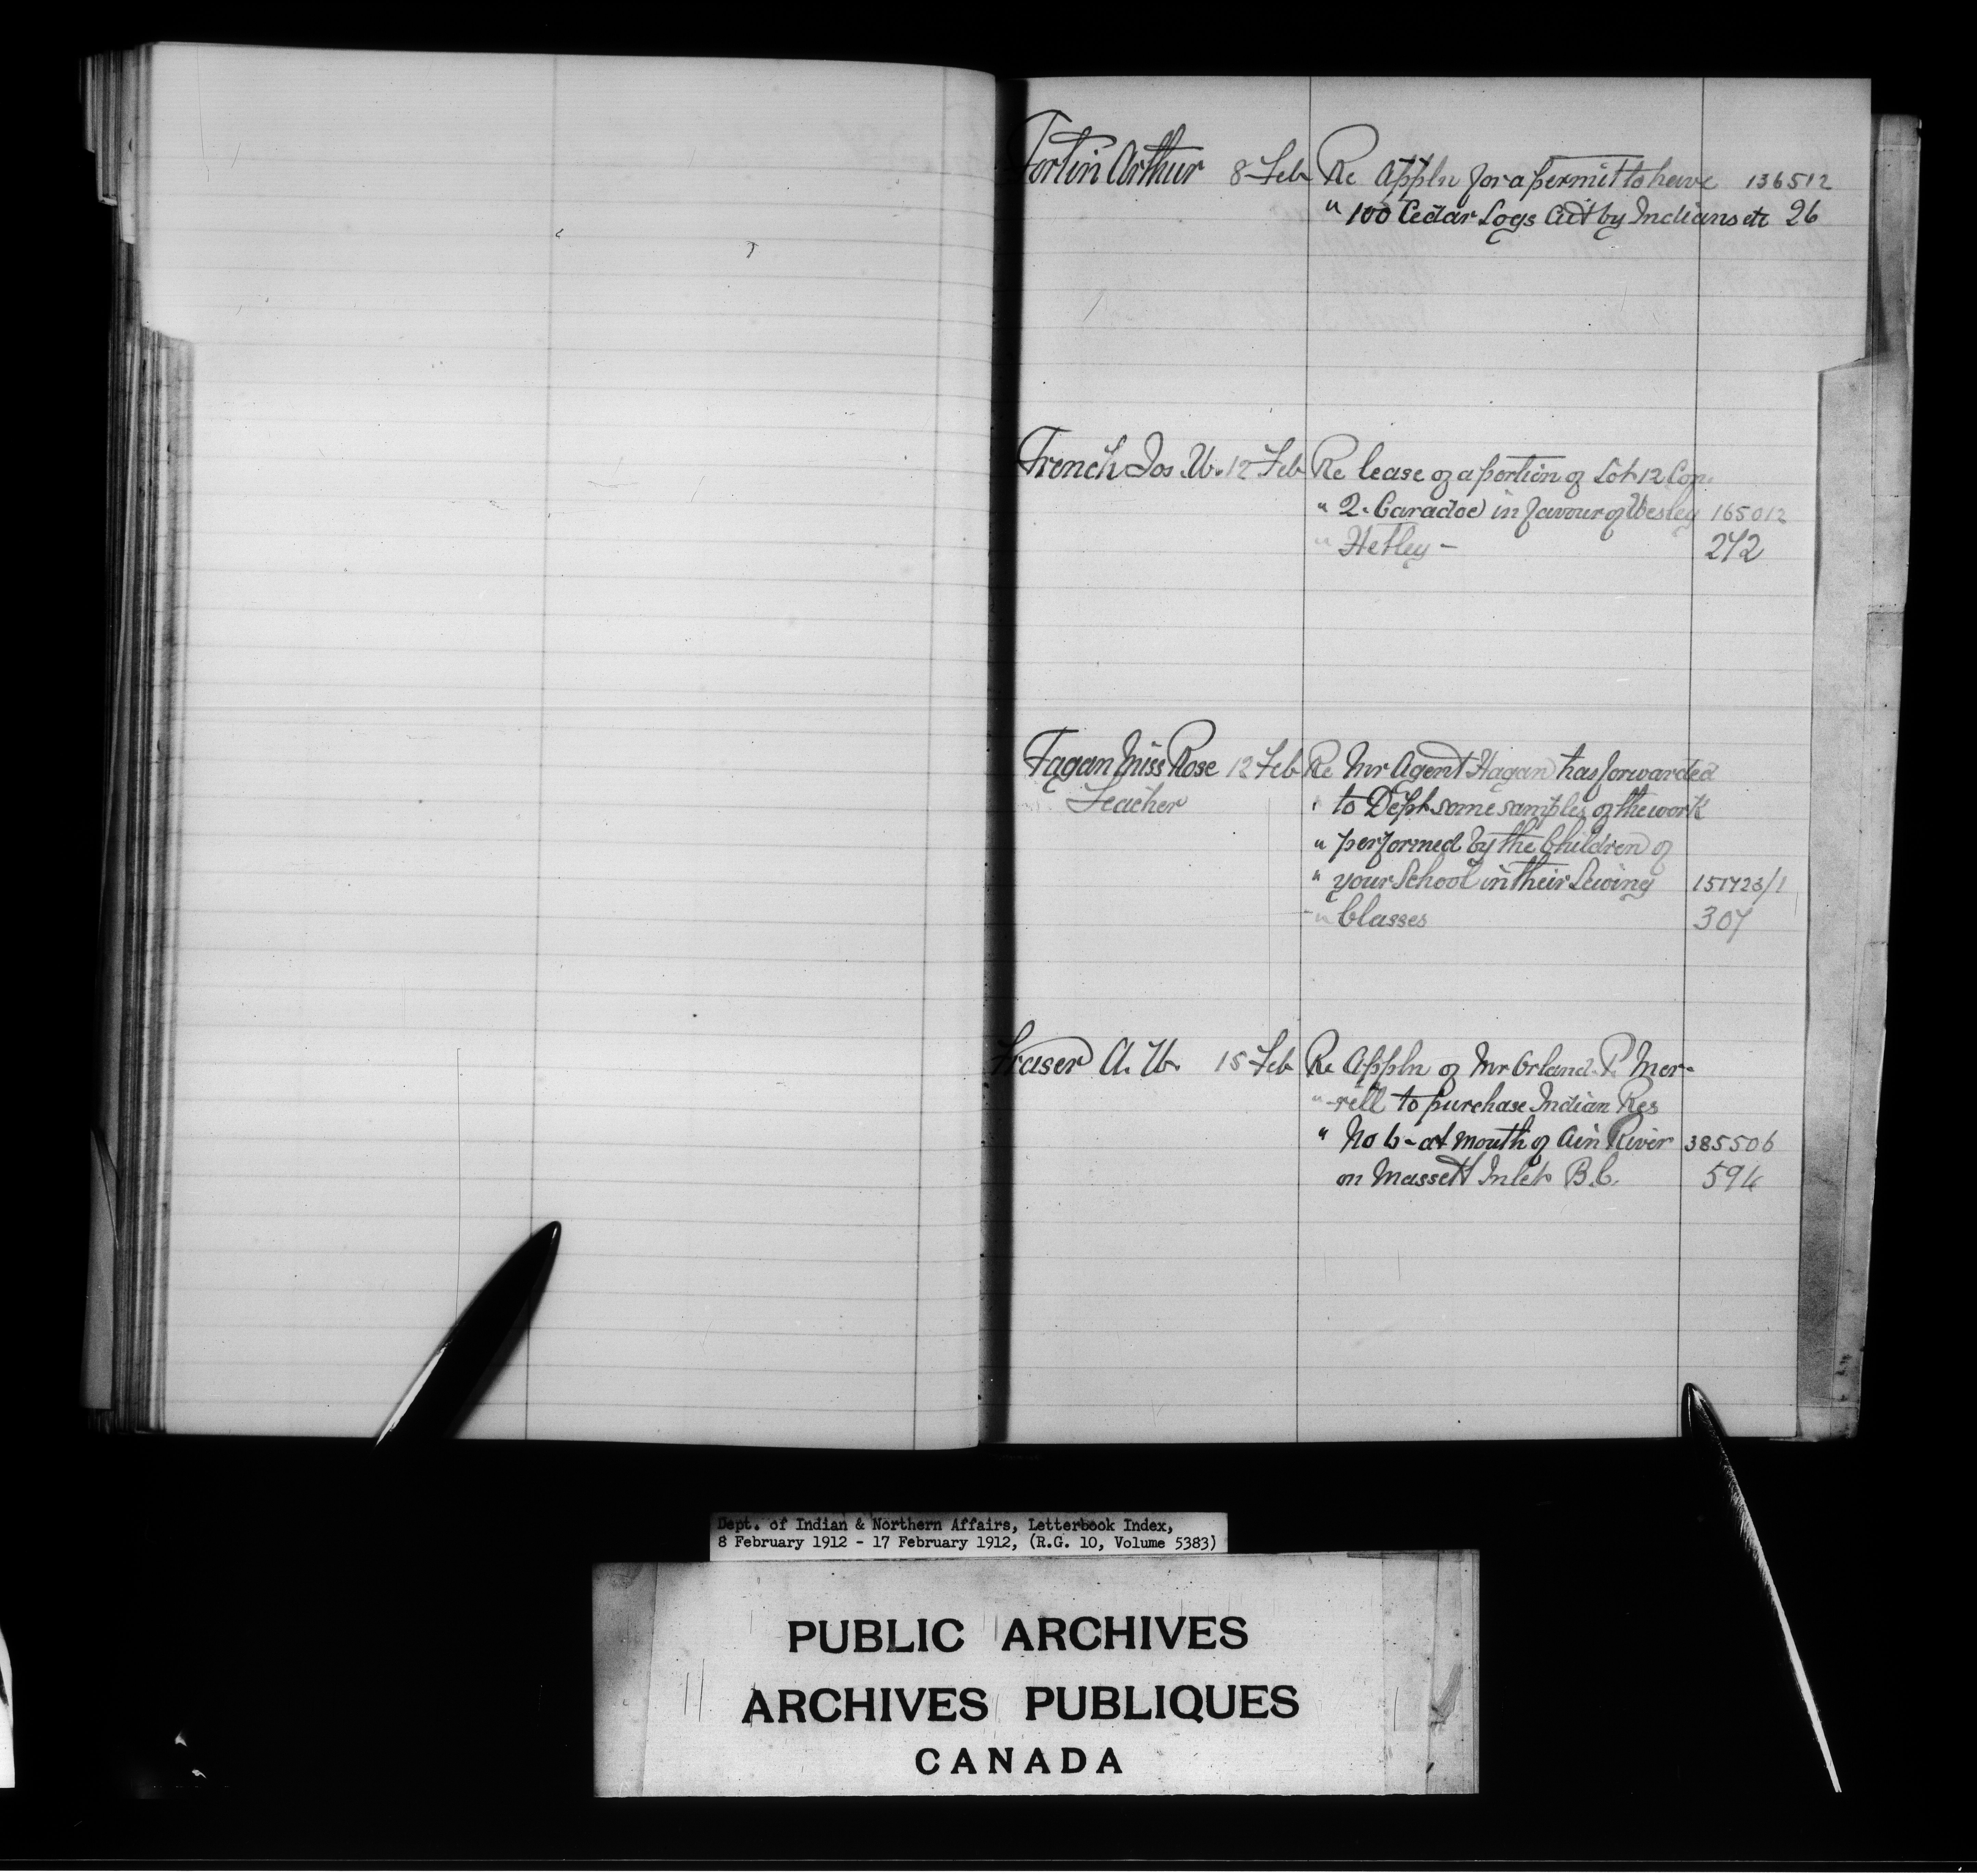 Fortin Arthur 8 Feb Re Appln for a permit to have 136512
" 100 Cedar Logs Cut by Indians etc 26
French Jos. W. 12 Feb Re lease of a portion of Lot 12 Con.
" 2. Caradoc in favour of Wesley 165012
" Hetley - 272
Fagan Miss Rose 12 Feb Re Mr Agent Hagan has forwarded
Teacher " to Dept some samples of the work
" performed by the Children of
" your School in their Sewing 151723/1
" Classes 307
Fraser A. W. 15 Feb Re Appln of Mr Orland P. Mer-
" -rell to purchase Indian Res
" No 6 - at mouth of Ain River 385506
on Massett Inlet B.C. 596
Dept. of Indian & Northern Affairs, Letterbook Index,
8 February 1912 - 17 February 1912, (R.G. 10, Volume 5383)
PUBLIC ARCHIVES
ARCHIVES PUBLIQUES
CANADA